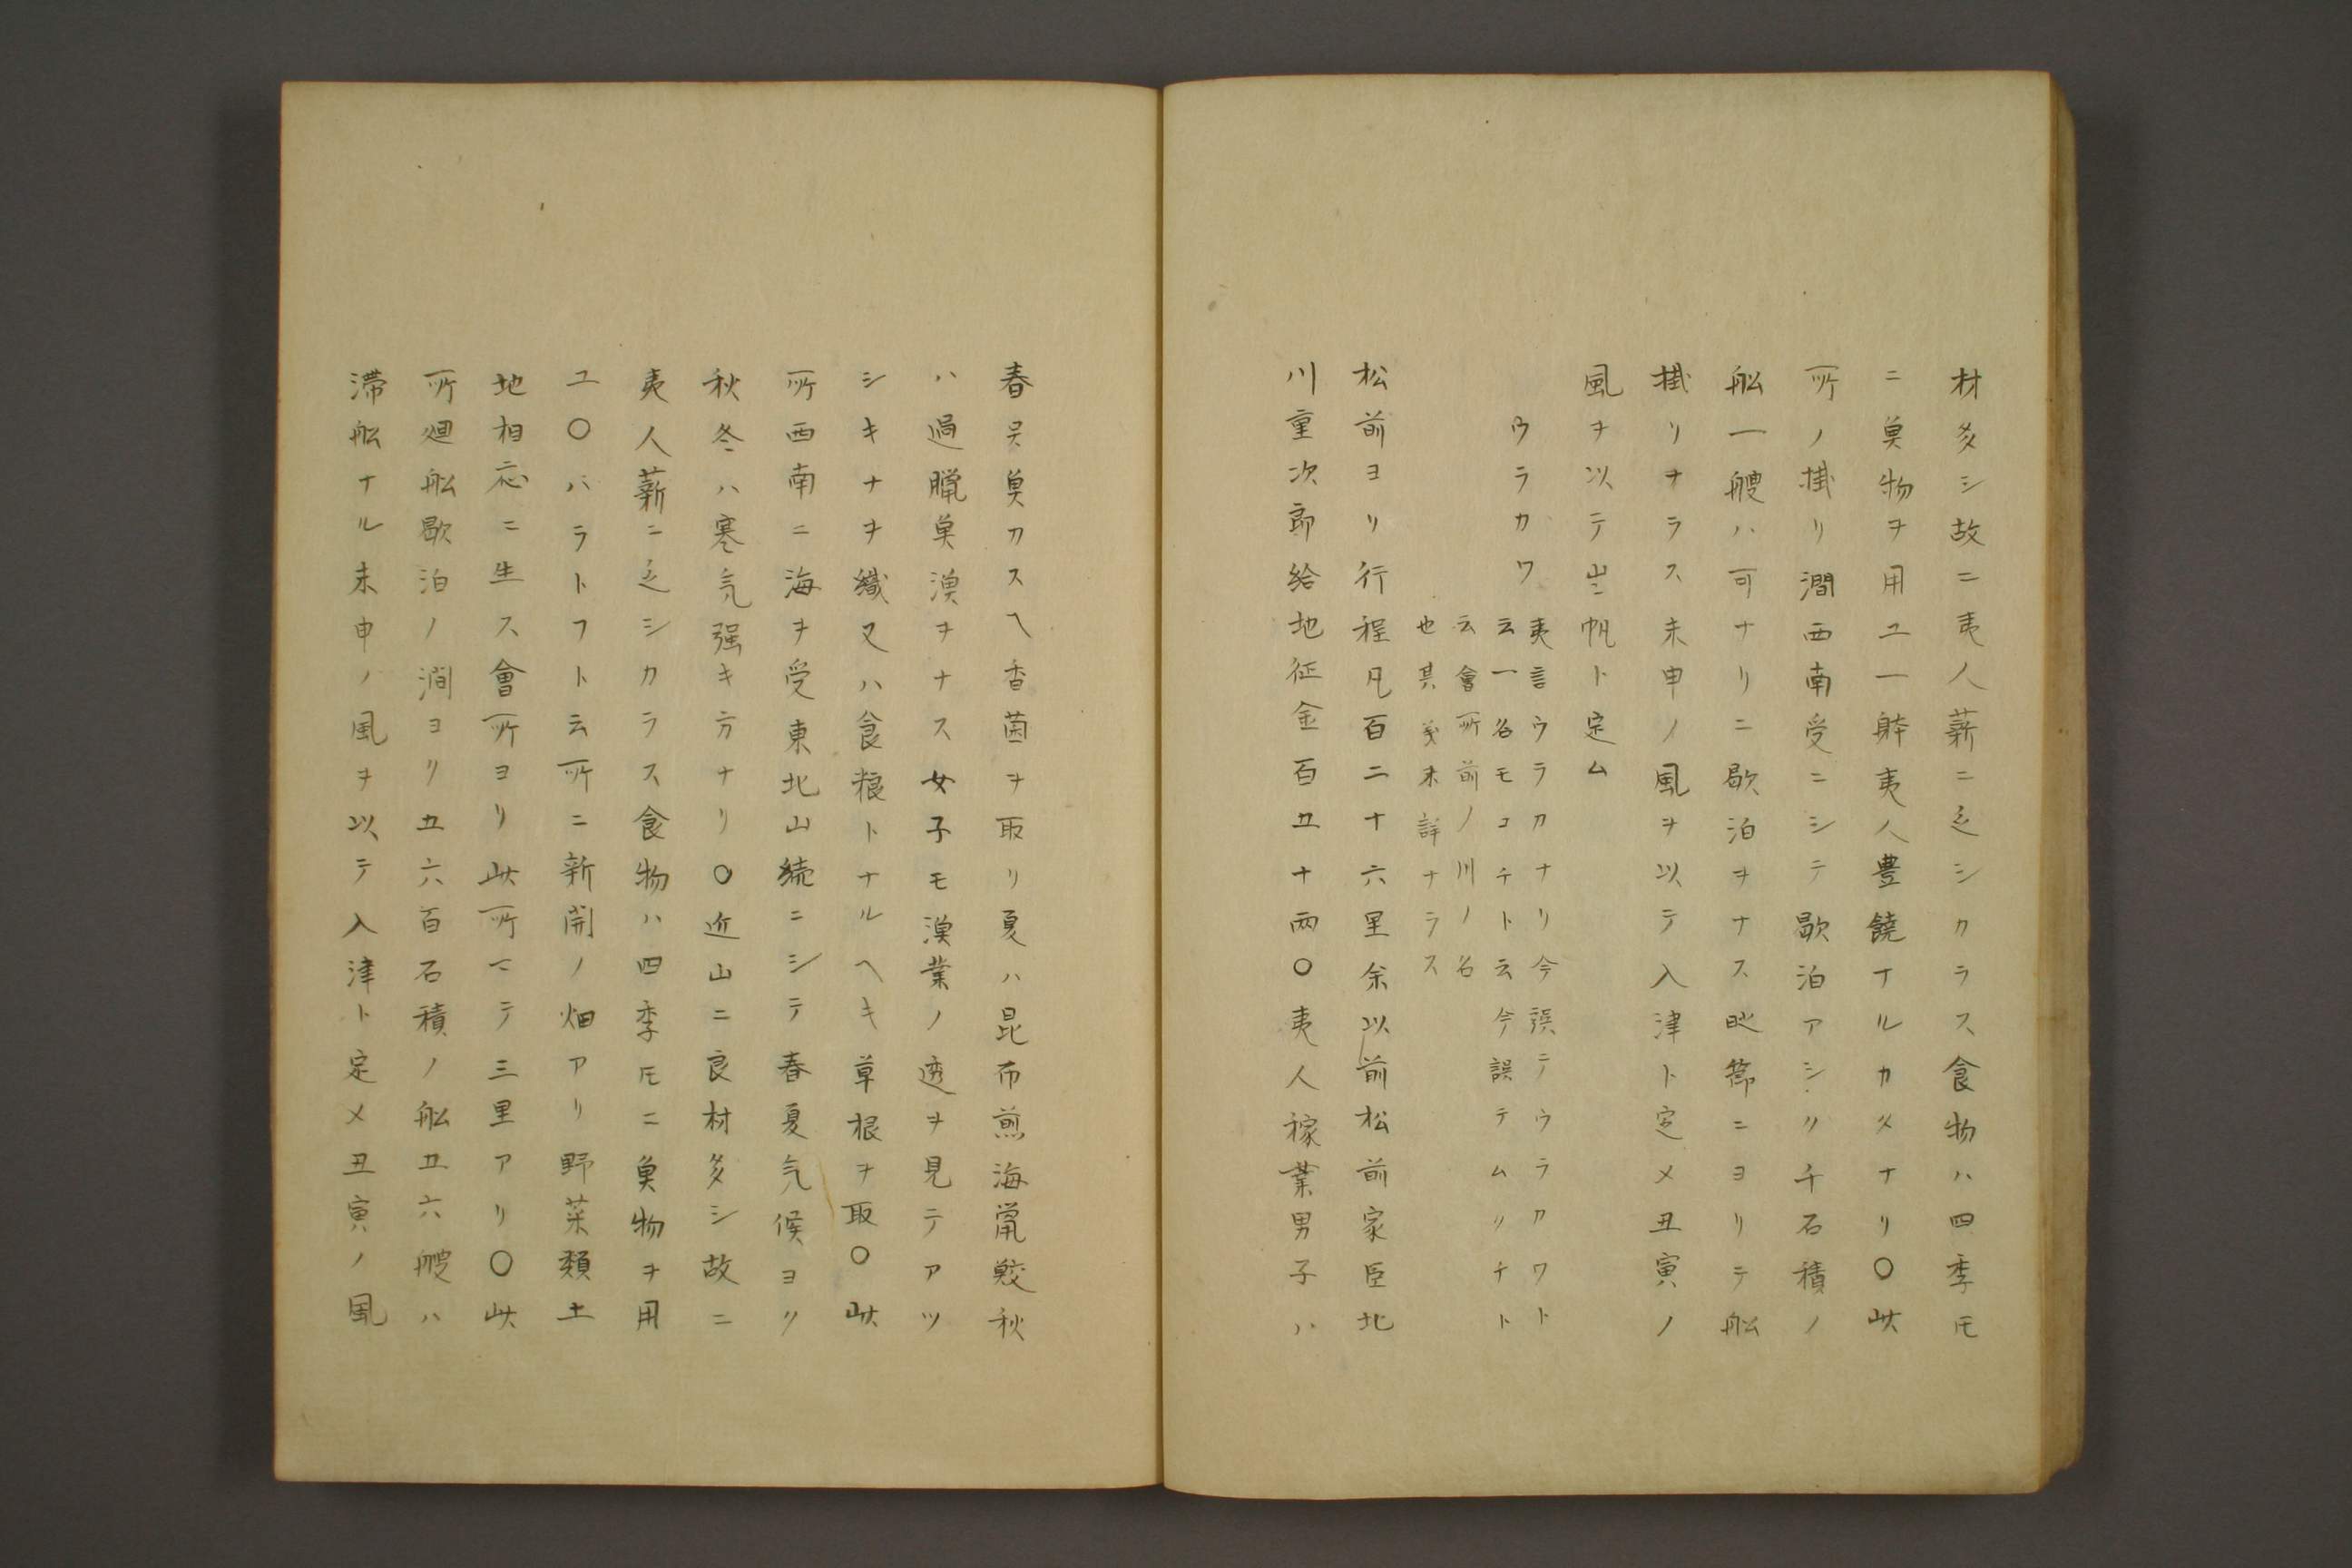 材多シ故ニ夷人薪ニ乏シカラス食物ハ四季モ
ニ魚物ヲ用ユ一躰夷人豊饒ナルカタナリ〇此
所ノ掛リ澗西南受ニシテ歇泊アシヽリ千石積ノ
船一艘ハ可ナリニ歇泊ヲナス時節ニヨリテ船
掛リナラス未申ノ風ヲ以テ入津ト定メ丑寅ノ
風ヲ以テ出帆ト定ム
ウラカワ
夷言ウラカナリ今誤テウラカワト
云一名モコチト云今誤テムリチト
云會所前ノ川ノ名
也其義未詳ナラス
松前ヨリ行程凡百二十六里余以前松前家臣北
川重次郎給地征金百五十両〇夷人稼業男子ハ
春ハ魚カスヘ香茵ヲ取リ夏ハ昆布煎海鼠鮫秋
ハ過臘魚漁ヲナス女子モ漁業ノ透ヲ見テアツ
シキナヲ織又ハ食粮トナルヘキ草根ヲ取〇此
所西南ニ海ヲ受東北山続ニシテ春夏気候ヨリ
秋冬ハ寒気强キ方ナリ〇近山ニ良材多シ故ニ
夷人薪ニ乏シカラス食物ハ四季モニ魚物ヲ用
ユ〇バラトフト云所ニ新開ノ畑アリ野菜類土
地相応ニ生ス會所ヨリ此所マテ三里アリ〇此
所廻船歇泊ノ澗ヨリ五六百石積ノ船五六艘ハ
滞船ナル未申ノ風ヲ以テ入津ト定メ丑寅ノ風